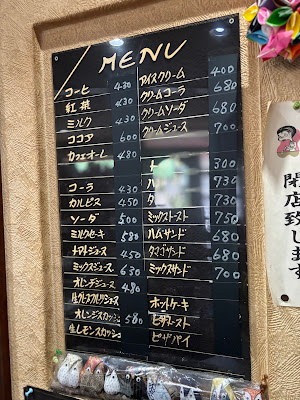 MENU
コーヒ 430
紅茶 430
ミルク 430
ココア 600
カフェオーレ 480
コーラ 430
カルピス 450
ソーダ 500
ミルクセーキ 580
トマトジュース 450
ミックスジュース 630
オレンヂジュース 480
生グレープフルーツジュース
オレンジスカッシュ 580
生レモンスカッシュ
アイスクリーム 400
クリームコーラ 680
クリームソーダ 680
クリームジュース 700
ト 300
ハ 730
タ 730
ミックストースト 750
ハムサンド 680
タマゴサンド 680
ミックスサンド 700
ホットケーキ
ピザトースト
ピザパイ
閉店致します